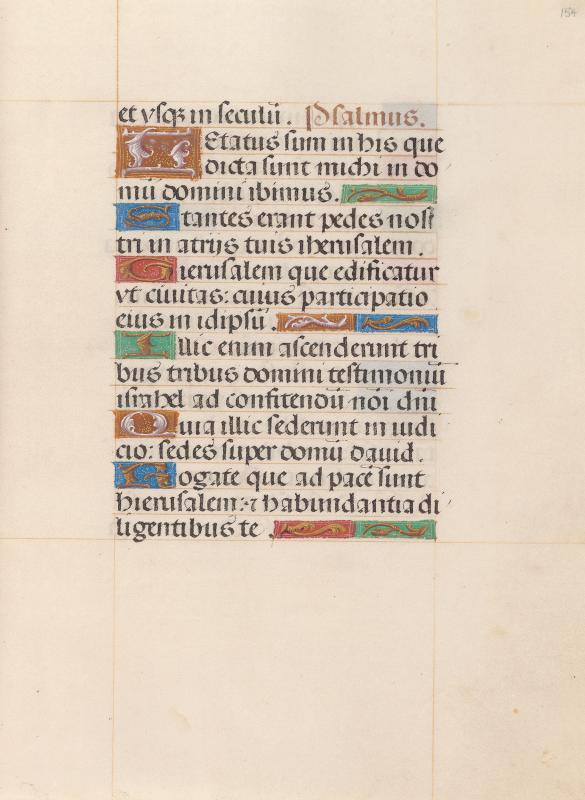 154
et vsqȝ in seculū. Psalmus.
LEtatus sum in his que
dicta sunt michi in do
mū domini ibimus.
Stantes erant pedes nost
tri in atrijs tuis iherusalem.
Gierusalem que edificatur
vt ciuitas: cuius participatio
eius in idipsū.
Illic enim ascenderunt tri
bus tribus domini testimoniū
israhel ad confitendū noi dni
Quia illic sederunt in iudi
cio: sedes super domū dauid.
Rogate que ad pacē sunt
hierusalem: ⁊ habundantia di
ligentibus te.